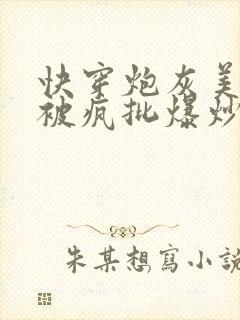 快穿炮灰美
被疯批爆炒
朱某想寫小說